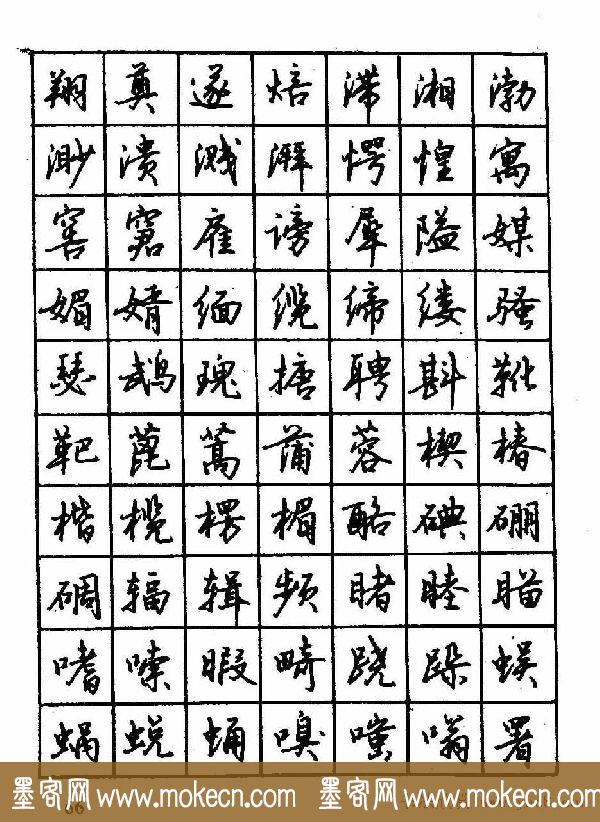 翔 奠 遂 焙 滞 湘 渤
渺 溃 溅 湃 愕 惶 寓
窖 窘 雇 谤 犀 隘 媒
媚 婿 缅 缆 缔 缕 骚
瑟 鹉 瑰 搪 聘 斟 靴
靶 蓖 蒿 蒲 蓉 楔 椿
楷 榄 楞 楣 酪 碘 硼
碉 辐 辑 频 睹 睦 瞄
嗜 嗦 暇 畸 跷 跺 蜈
蜗 蜕 蛹 嗅 嗤 嗡 署
墨客网 www.mokecn.com 墨客网 www.mokecn.com